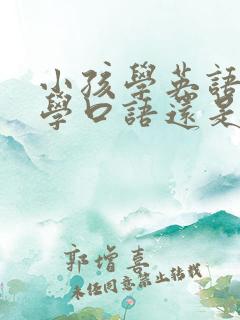 小孩學英語
學口語還是
郭增喜
未經同意禁止轉載